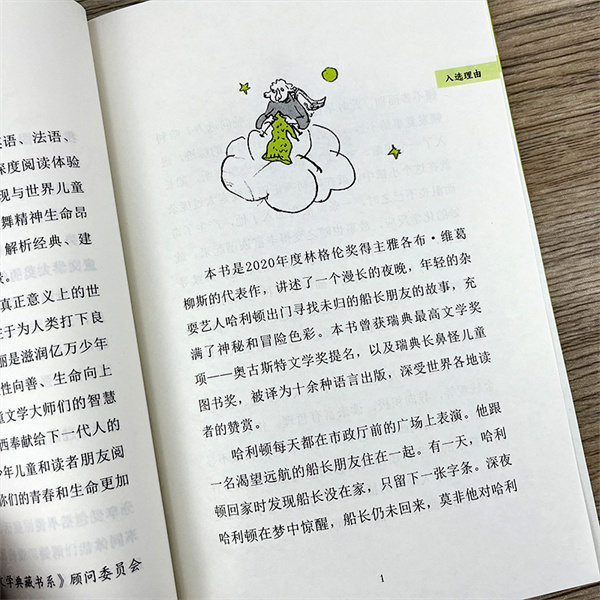 英语、法语、
深度阅读体验
现与世界儿童
舞精神生命昂
解析经典、建
真正意义上的世
在于为人类打下良
丽是滋润亿万少年
性向善、生命向上
重文学大师们的智慧
西奉献给下一代人的
少年儿童和读者朋友阅
你们的青春和生命更加
文学典藏书系》顾问委员会
入选理由
本书是2020年度林格伦奖得主雅各布·维葛
柳斯的代表作，讲述了一个漫长的夜晚，年轻的杂
耍艺人哈利顿出门寻找未归的船长朋友的故事，充
满了神秘和冒险色彩。本书曾获瑞典最高文学奖
项——奥古斯特文学奖提名，以及瑞典长鼻怪儿童
图书奖，被译为十余种语言出版，深受世界各地读
者的赞赏。
哈利顿每天都在市政厅前的广场上表演。他跟
一名渴望远航的船长朋友住在一起。有一天，哈利
顿回家时发现船长没在家，只留下一张字条。深夜
哈利顿在梦中惊醒，船长仍未回来，莫非他对哈利
1